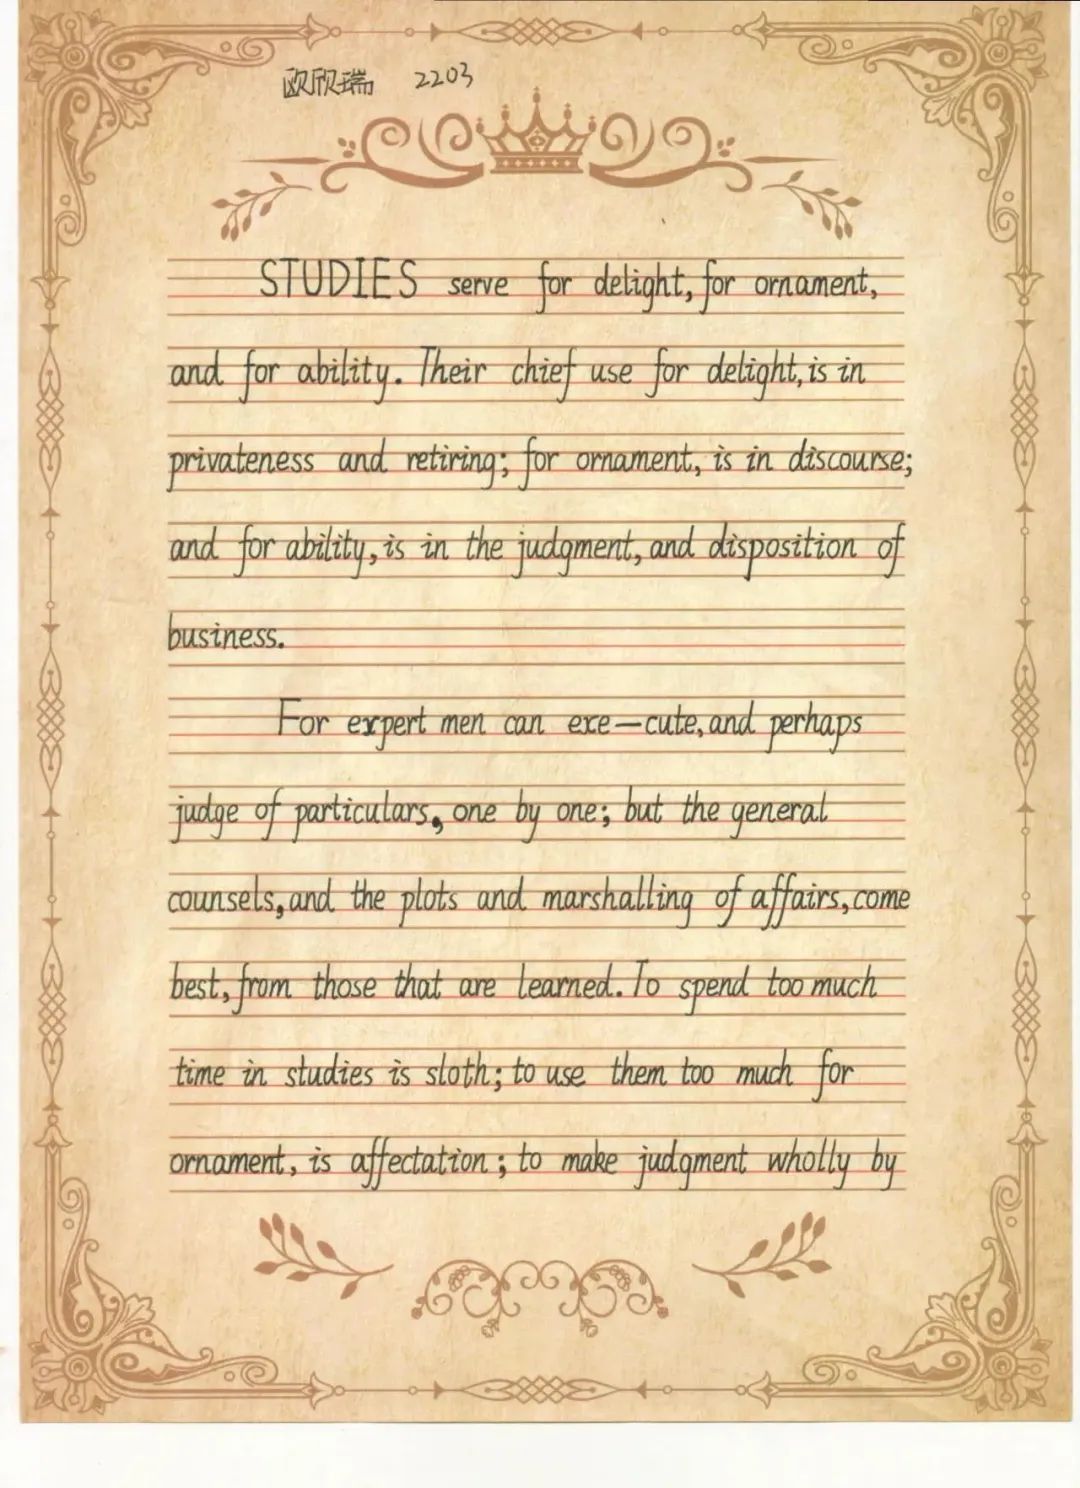 欧欣瑞 2203
STUDIES serve for delight, for ornament,
and for ability. Their chief use for delight, is in
privateness and retiring; for ornament, is in discourse;
and for ability, is in the judgment, and disposition of
business.
For expert men can exe—cute, and perhaps
judge of particulars, one by one; but the general
counsels, and the plots and marshalling of affairs, come
best, from those that are learned. To spend too much
time in studies is sloth; to use them too much for
ornament, is affectation; to make judgment wholly by